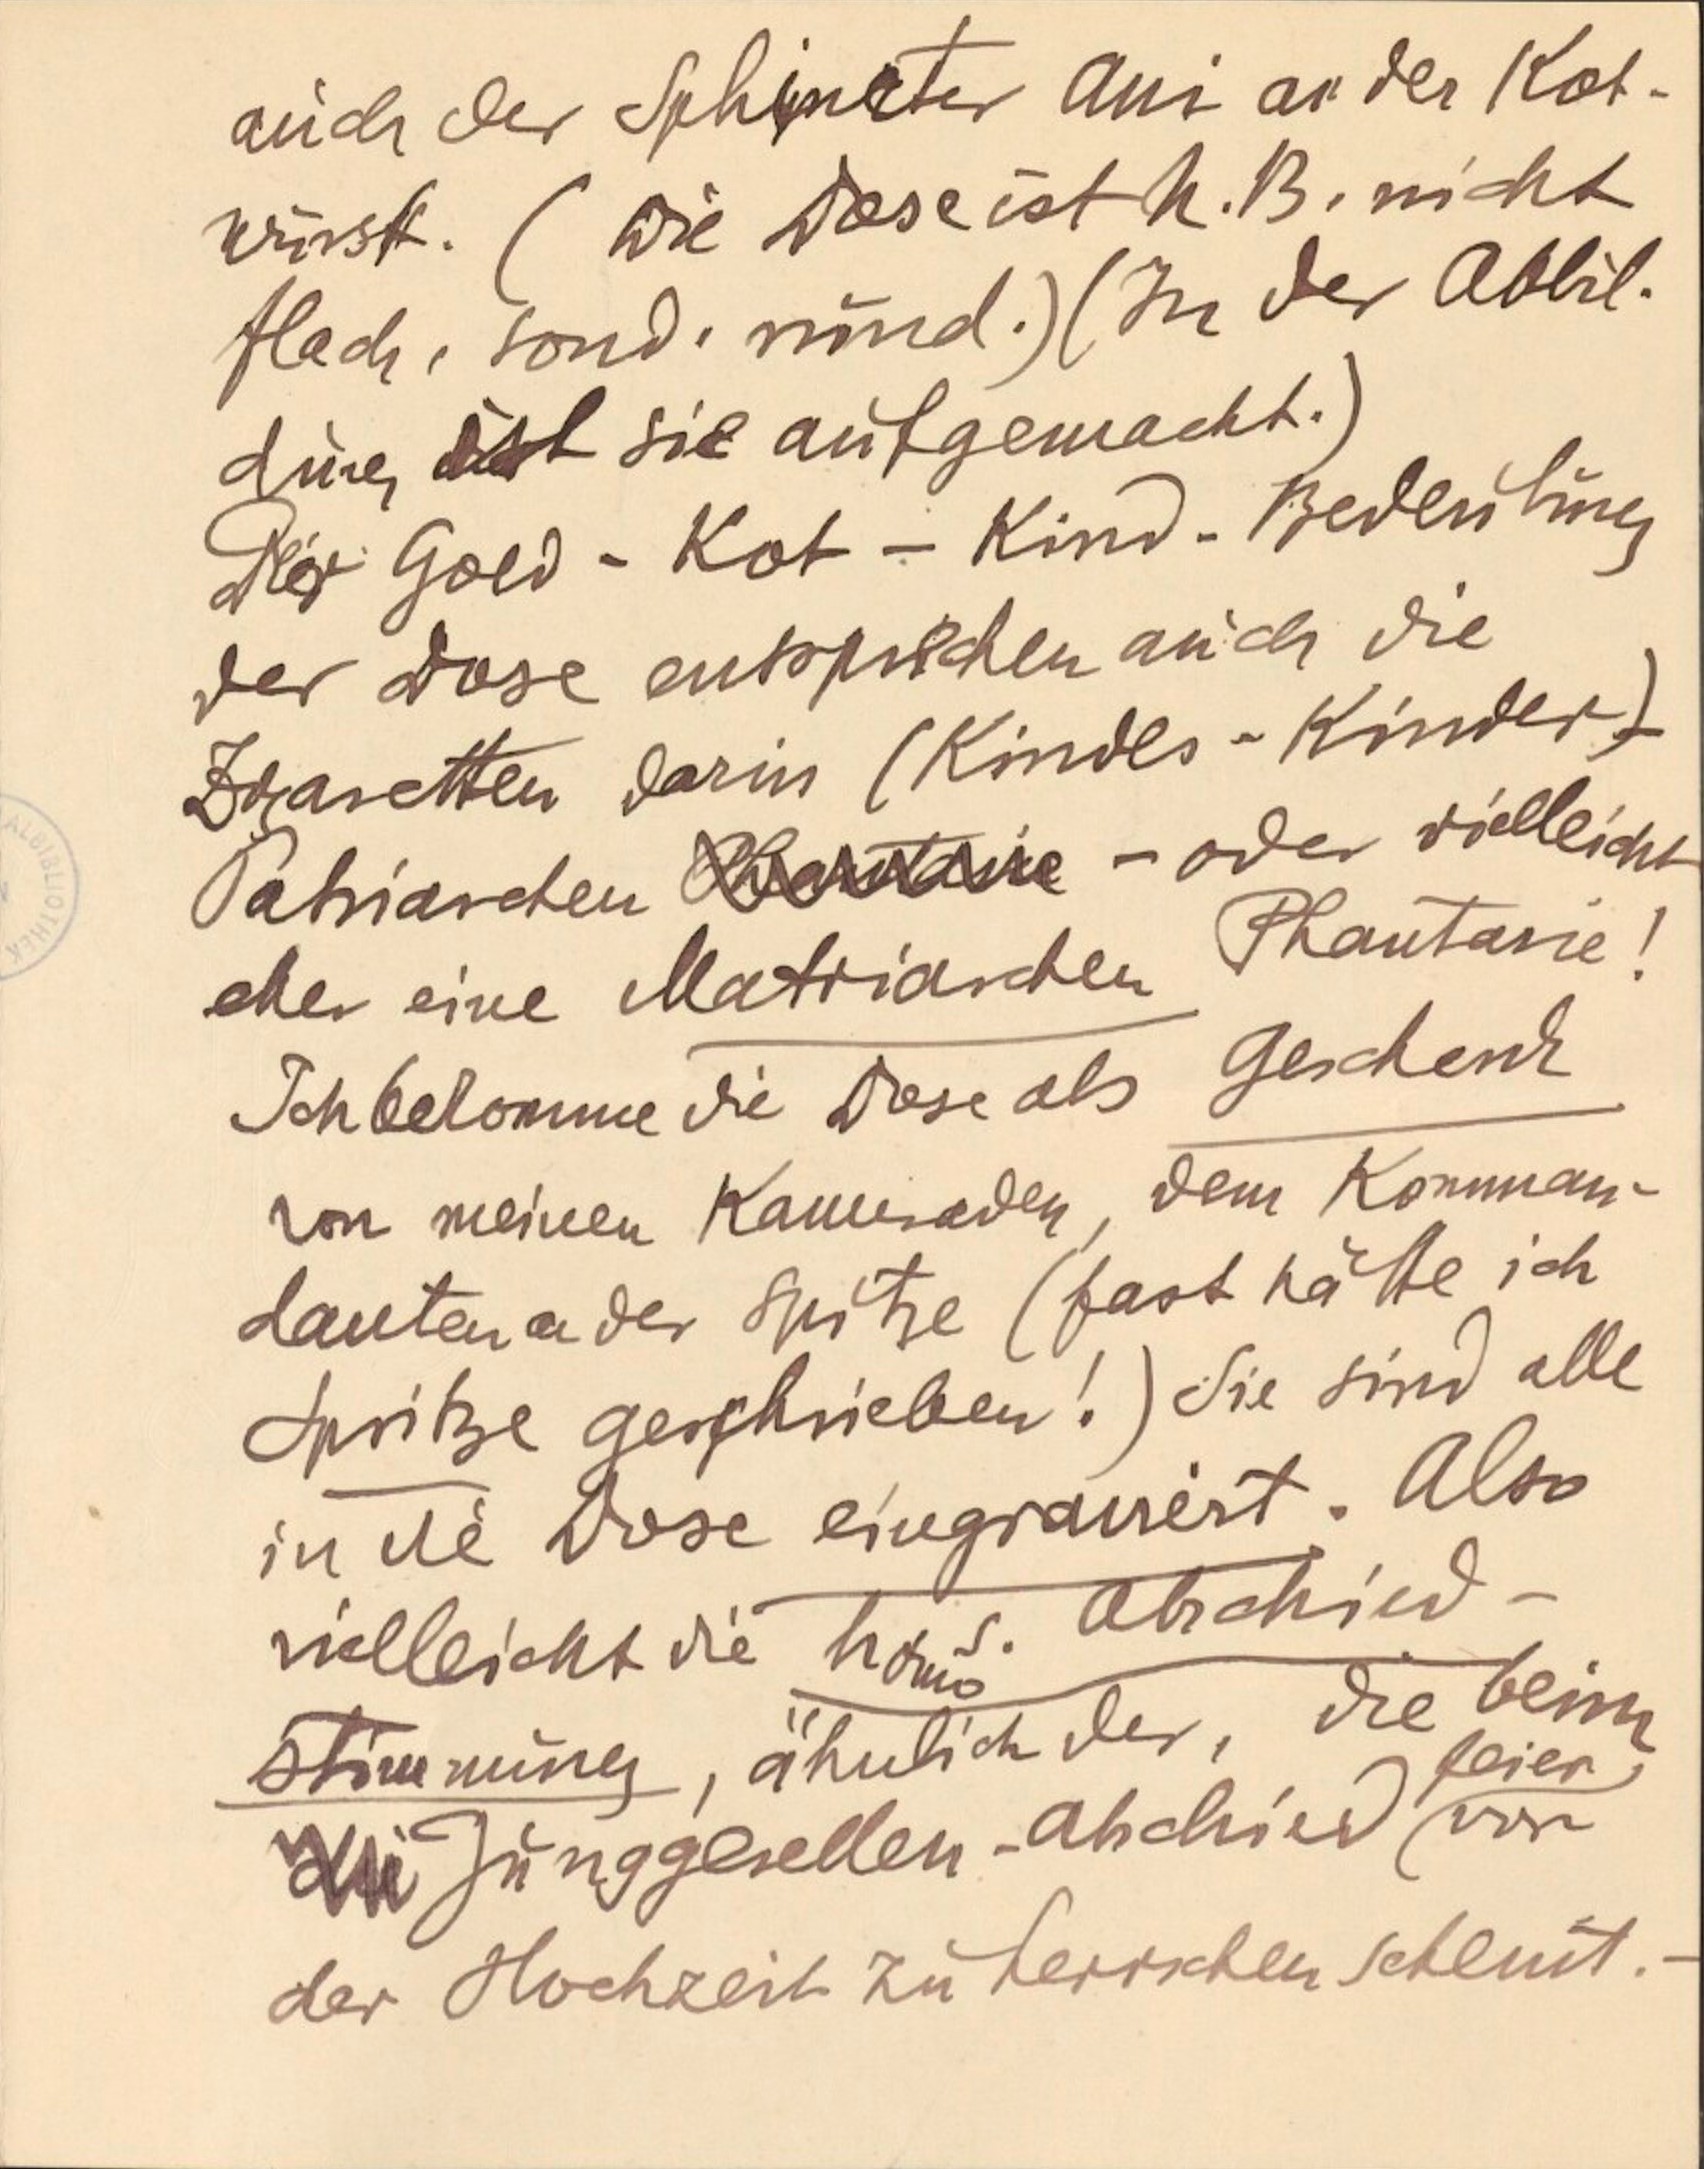 auch der Sphincter Ani an der Kot-
wurst. (Die Dose ist N.B. nicht
flach, sond. rund.) (In der Abbil-
dung ist sie aufgemacht.)
Der Gold - Kot - Kind - Bedeutung
der Dose entsprechen auch die
Zigaretten darin (Kindes - Kinder)
Patriarchen Phantasie - oder vielleicht
eher eine Matriarchen Phantasie!
Ich bekomme die Dose als Geschenk
von meinen Kameraden, dem Komman-
danten an der Spitze (fast hätte ich
Spritze geschrieben!) Sie sind alle
in die Dose eingraviert. Also
vielleicht die homos. Abschied-
stimmung, ähnlich der, die beim
Junggesellen-Abschied feier vor
der Hochzeit zu herrschen scheint. -
ALBIBLIOTHEK